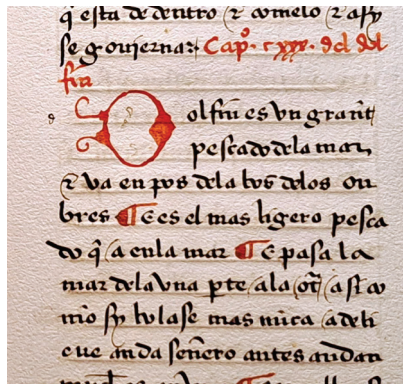 q̃ esta de dentro ⁊ comelo ⁊ asy
se gouiernar Capº. cxxx. del dol
fin
d Dolfin es vn grant
pescado dela mar
⁊ va en pos dela bos delos on
bres ¶ E es el mas ligero pesca
do q̃ a enla mar ¶ E pasa la
mar dela vna pte ala ot̃
mo sy bolase mas nũca
que anda señero antes andan